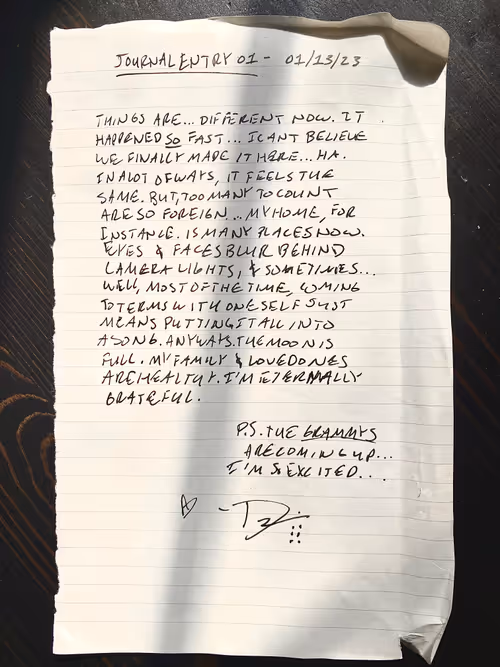 JOURNAL ENTRY 01 - 01/13/23
THINGS ARE... DIFFERENT NOW. IT
HAPPENED SO FAST... I CANT BELIEVE
WE FINALLY MADE IT HERE... HA.
IN ALOT OF WAYS, IT FEELS THE
SAME. BUT, TOO MANY TO COUNT
ARE SO FOREIGN... MY HOME, FOR
INSTANCE. IS MANY PLACES NOW.
EYES & FACES BLUR BEHIND
CAMERA LIGHTS, & SOMETIMES...
WELL, MOST OF THE TIME, COMING
TO TERMS WITH ONESELF JUST
MEANS PUTTING IT ALL INTO
A SONG. ANYWAYS. THE MOON IS
FULL. MY FAMILY & LOVED ONES
ARE HEALTHY. I'M ETERNALLY
GRATEFUL.
P.S. THE GRAMMYS
ARE COMING UP...
I'M SO EXCITED...